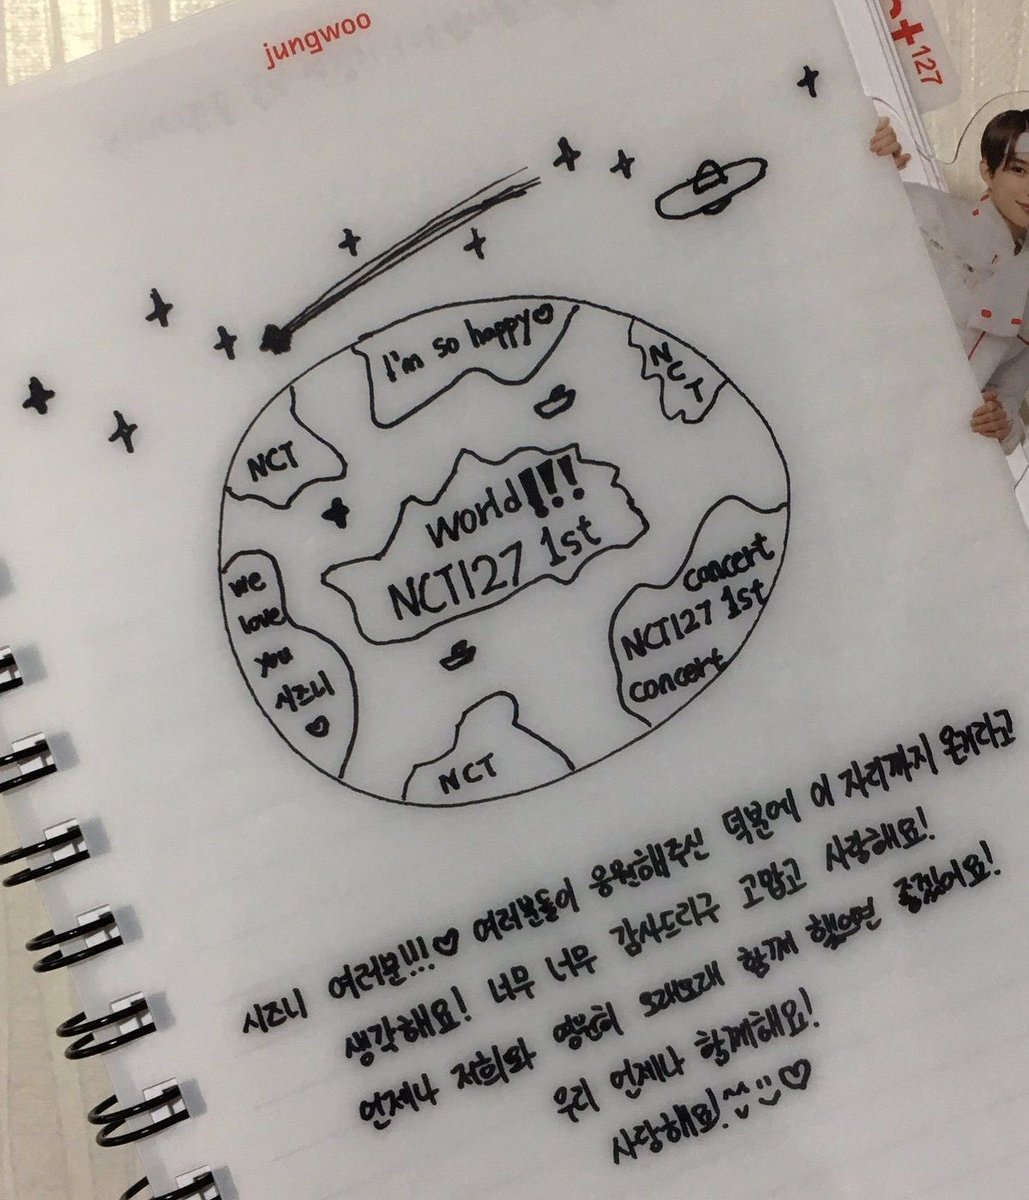 jungwoo
127
I'm so happy♡
NCT
NCT
World!!!
NCT127 1st
we
love
you
시즈니
♡
concert
NCT127 1st
concert
NCT
시즈니 여러분!!!♡ 여러분들이 응원해주신 덕분에 이 자리까지 온거라고
생각해요! 너무 너무 감사드리구 고맙고 사랑해요!
언제나 저희와 영원히 오래오래 함께 했으면 좋겠어요!
우리 언제나 함께해요!
사랑해요!^^:)♡